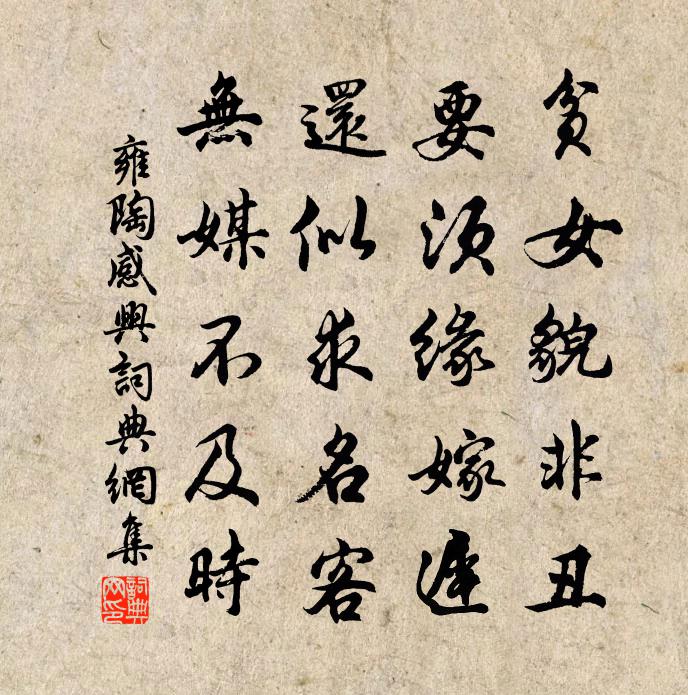 貧女貌非丑
要須緣嫁遲
還似求名客
無媒不及時
雍陶感興詞典網集
詞典
网印